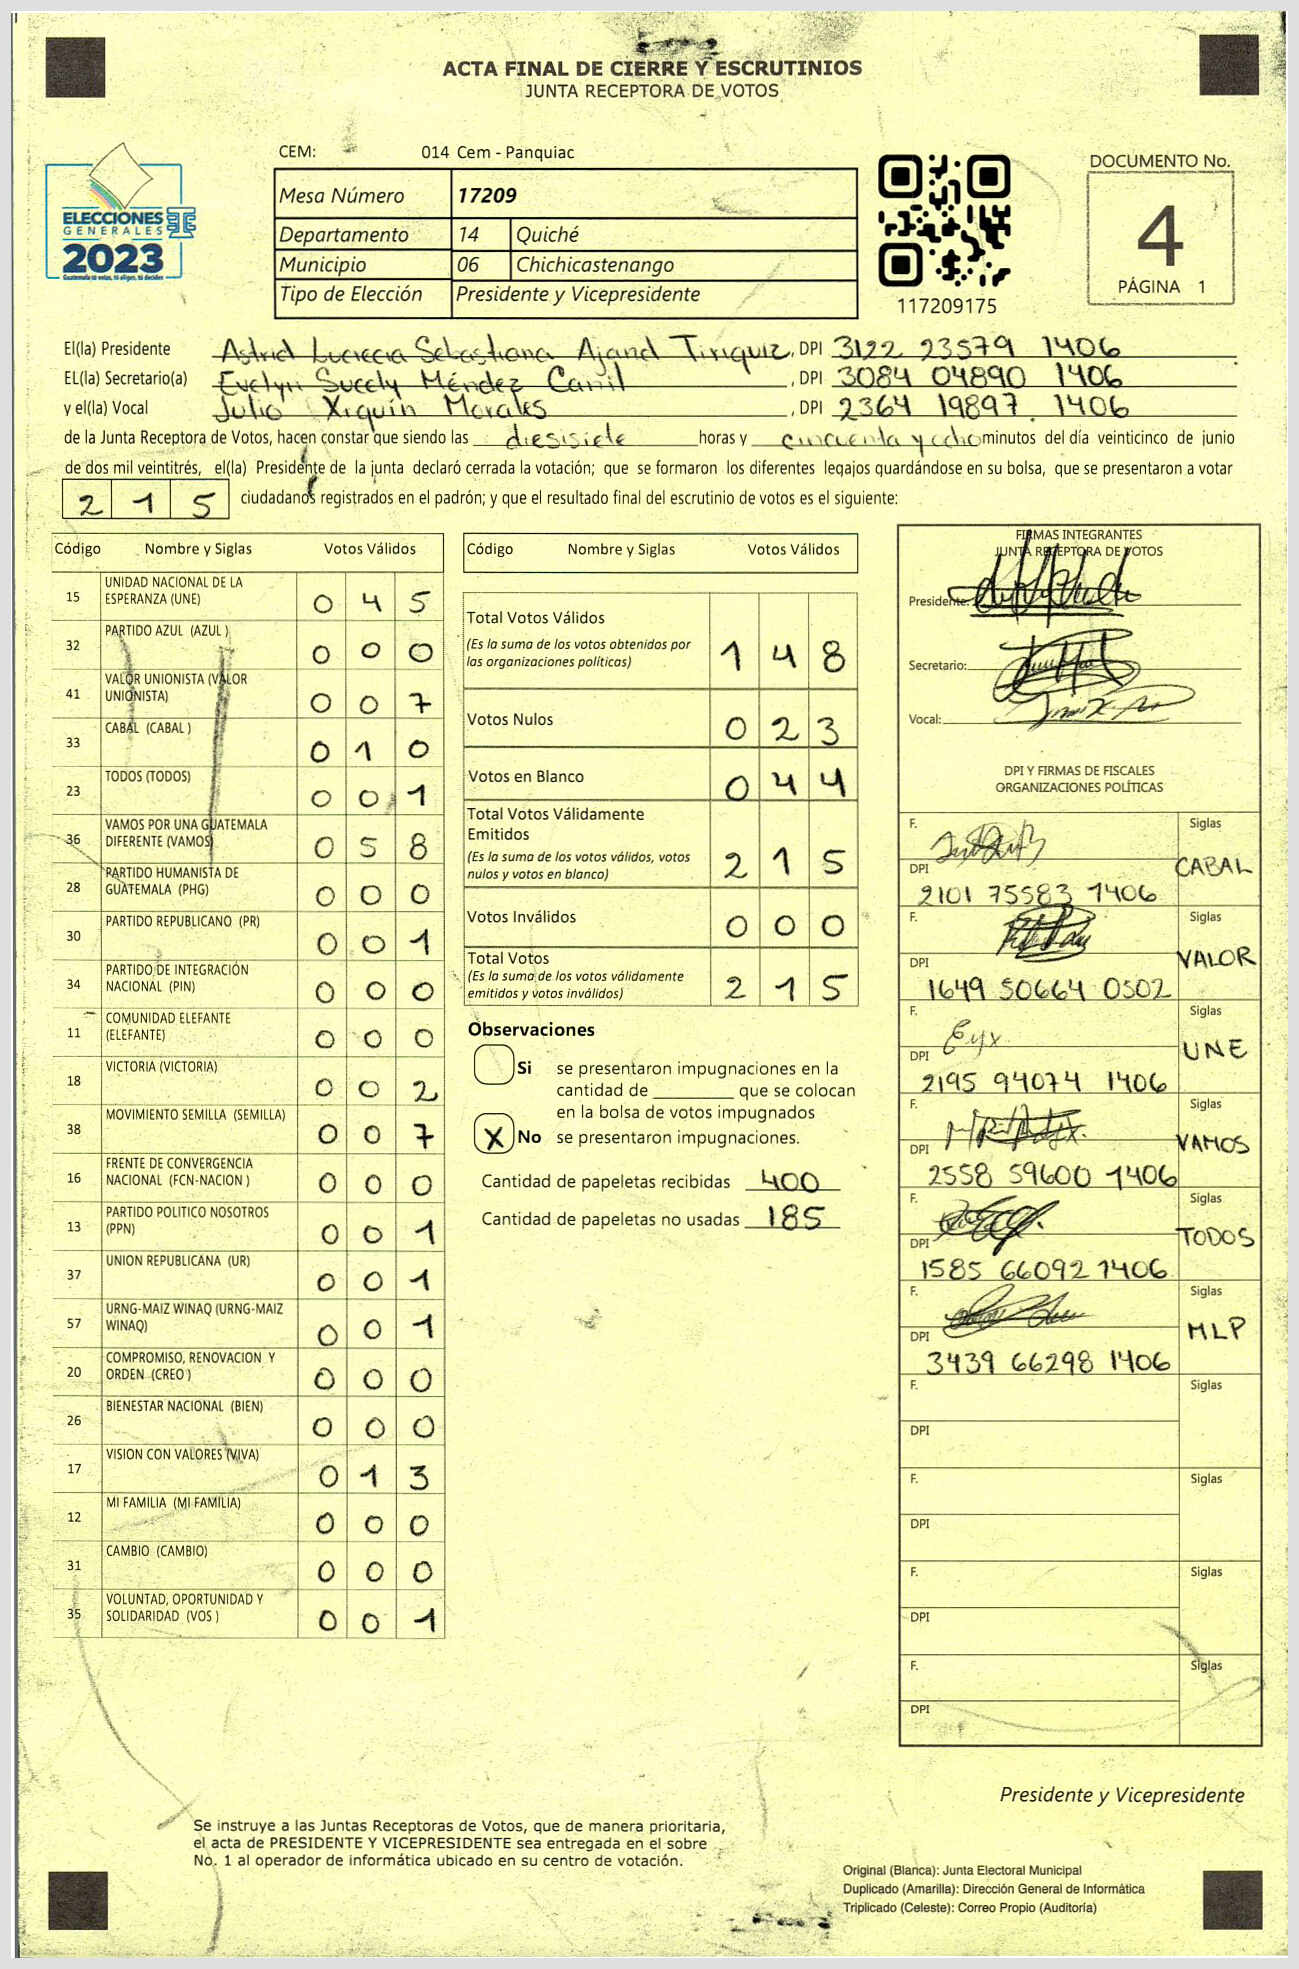 ACTA FINAL DE CIERRE Y ESCRUTINIOS
JUNTA RECEPTORA DE VOTOS
CEM: 014 Cem - Panquiac
Mesa Número 17209
Departamento 14 Quiché
Municipio 06 Chichicastenango
Tipo de Elección Presidente y Vicepresidente
ELECCIONES
GENERALES
2023
Guatemala tú votas, tú eliges, tú decides
117209175
DOCUMENTO No.
4
PÁGINA 1
El(la) Presidente Astrid Lucrecia Sebastiana Ajand Tiriquiz, DPI 3122 23579 1406
EL(la) Secretario(a) Evelyn Sucely Méndez Canil, DPI 3084 04890 1406
y el(la) Vocal Julio Xiquín Morales, DPI 2364 19897 1406
de la Junta Receptora de Votos, hacen constar que siendo las diesisiete horas y cincuenta y ocho minutos del día veinticinco de junio
de dos mil veintitrés, el(la) Presidente de la junta declaró cerrada la votación; que se formaron los diferentes legajos quardándose en su bolsa, que se presentaron a votar
2 1 5 ciudadanos registrados en el padrón; y que el resultado final del escrutinio de votos es el siguiente:
Código Nombre y Siglas Votos Válidos
15 UNIDAD NACIONAL DE LA
ESPERANZA (UNE) 0 4 5
32 PARTIDO AZUL (AZUL ) 0 0 0
41 VALOR UNIONISTA (VALOR
UNIONISTA) 0 0 7
33 CABAL (CABAL ) 0 1 0
23 TODOS (TODOS) 0 0 1
36 VAMOS POR UNA GUATEMALA
DIFERENTE (VAMOS) 0 5 8
28 PARTIDO HUMANISTA DE
GUATEMALA (PHG) 0 0 0
30 PARTIDO REPUBLICANO (PR) 0 0 1
34 PARTIDO DE INTEGRACIÓN
NACIONAL (PIN) 0 0 0
11 COMUNIDAD ELEFANTE
(ELEFANTE) 0 0 0
18 VICTORIA (VICTORIA) 0 0 2
38 MOVIMIENTO SEMILLA (SEMILLA) 0 0 7
16 FRENTE DE CONVERGENCIA
NACIONAL (FCN-NACION ) 0 0 0
13 PARTIDO POLITICO NOSOTROS
(PPN) 0 0 1
37 UNION REPUBLICANA (UR) 0 0 1
57 URNG-MAIZ WINAQ (URNG-MAIZ
WINAQ) 0 0 1
20 COMPROMISO, RENOVACION Y
ORDEN (CREO ) 0 0 0
26 BIENESTAR NACIONAL (BIEN) 0 0 0
17 VISION CON VALORES (VIVA) 0 1 3
12 MI FAMILIA (MI FAMILIA) 0 0 0
31 CAMBIO (CAMBIO) 0 0 0
35 VOLUNTAD, OPORTUNIDAD Y
SOLIDARIDAD (VOS ) 0 0 1
Código Nombre y Siglas Votos Válidos
Total Votos Válidos
(Es la suma de los votos obtenidos por
las organizaciones políticas) 1 4 8
Votos Nulos 0 2 3
Votos en Blanco 0 4 4
Total Votos Válidamente
Emitidos
(Es la suma de los votos válidos, votos
nulos y votos en blanco) 2 1 5
Votos Inválidos 0 0 0
Total Votos
(Es la suma de los votos válidamente
emitidos y votos inválidos) 2 1 5
Observaciones
Si se presentaron impugnaciones en la
cantidad de ________ que se colocan
en la bolsa de votos impugnados
X No se presentaron impugnaciones.
Cantidad de papeletas recibidas 400
Cantidad de papeletas no usadas 185
FIRMAS INTEGRANTES
JUNTA RECEPTORA DE VOTOS
Presidente:
Secretario:
Vocal:
DPI Y FIRMAS DE FISCALES
ORGANIZACIONES POLÍTICAS
F. Siglas
DPI CABAL
2101 75583 1406
F. Siglas
DPI VALOR
1649 50664 0502
F. Siglas
DPI UNE
2195 94074 1406
F. Siglas
DPI VAMOS
2558 59600 1406
F. Siglas
DPI TODOS
1585 66092 1406
F. Siglas
DPI MLP
3439 66298 1406
F. Siglas
DPI
F. Siglas
DPI
F. Siglas
DPI
F. Siglas
DPI
Presidente y Vicepresidente
Se instruye a las Juntas Receptoras de Votos, que de manera prioritaria,
el acta de PRESIDENTE Y VICEPRESIDENTE sea entregada en el sobre
No. 1 al operador de informática ubicado en su centro de votación.
Original (Blanca): Junta Electoral Municipal
Duplicado (Amarilla): Dirección General de Informática
Triplicado (Celeste): Correo Propio (Auditoría)